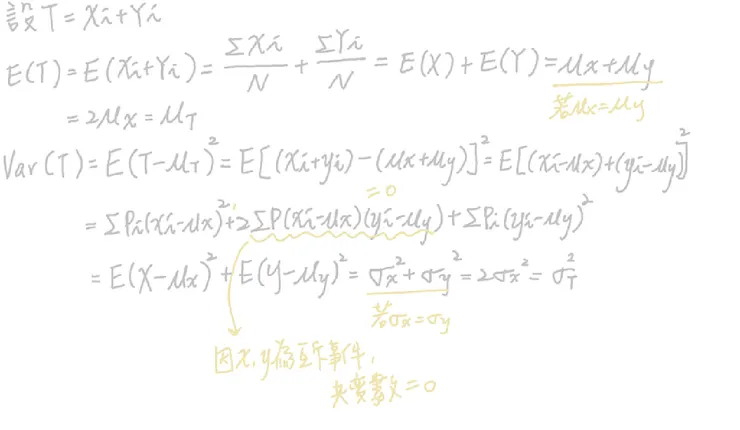 設T=Xi+Yi
E(T)=E(Xi+Yi)=ΣXi/N+ΣYi/N=E(X)+E(Y)=μx+μy
若μx=μy
=2μx=μT
Var(T)=E(T-μT)²=E[(Xi+yi)-(μx+μy)]²=E[(xi-μx)+(yi-μy)]²
=0
=ΣPi(xi-μx)²+2ΣP(xi-μx)(yi-μy)+ΣPi(yi-μy)²
=E(X-μx)²+E(Y-μy)²=σx²+σy²=2σx²=σT²
若σx=σy
因x,y為互斥事件,
共變數=0